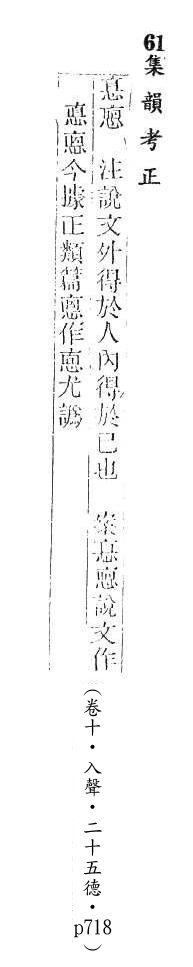 61集韻考正
惪悳 注說文外得於人內得於己也 案惪悳說文作
悳惪今據正類篇悳作悳尤譌
(卷十・入聲・二十五德・p718)